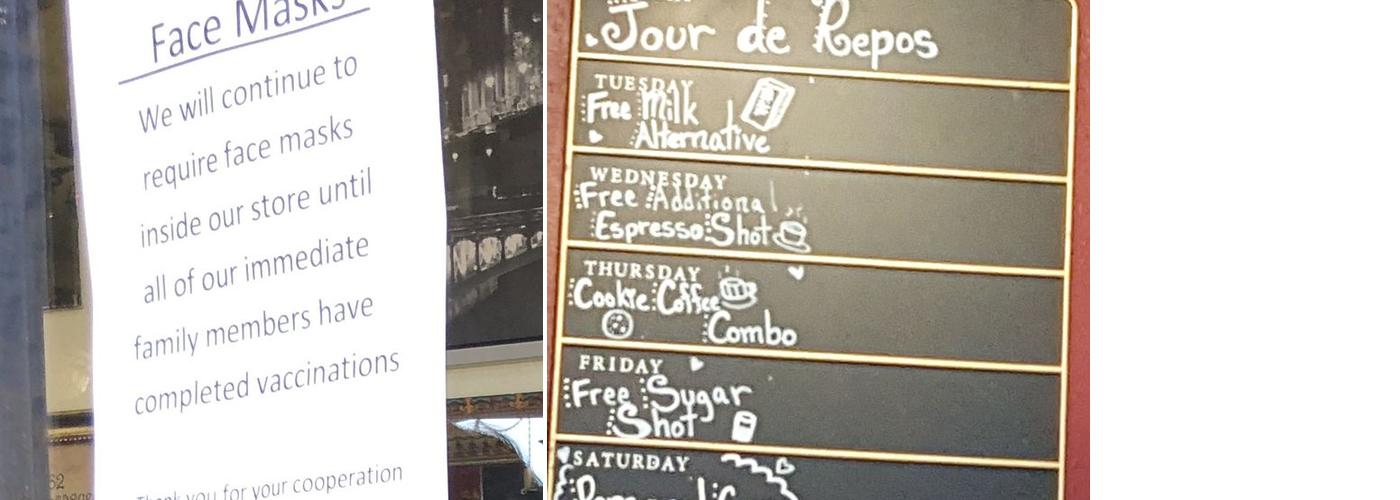 Face Masks
We will continue to
require face masks
inside our store until
all of our immediate
family members have
completed vaccinations
Thank you for your cooperation
Jour de Repos
TUESDAY
Free Milk
Alternative
WEDNESDAY
Free Additional
Espresso Shot
THURSDAY
Cookie Coffee
Combo
FRIDAY
Free Sugar
Shot
SATURDAY